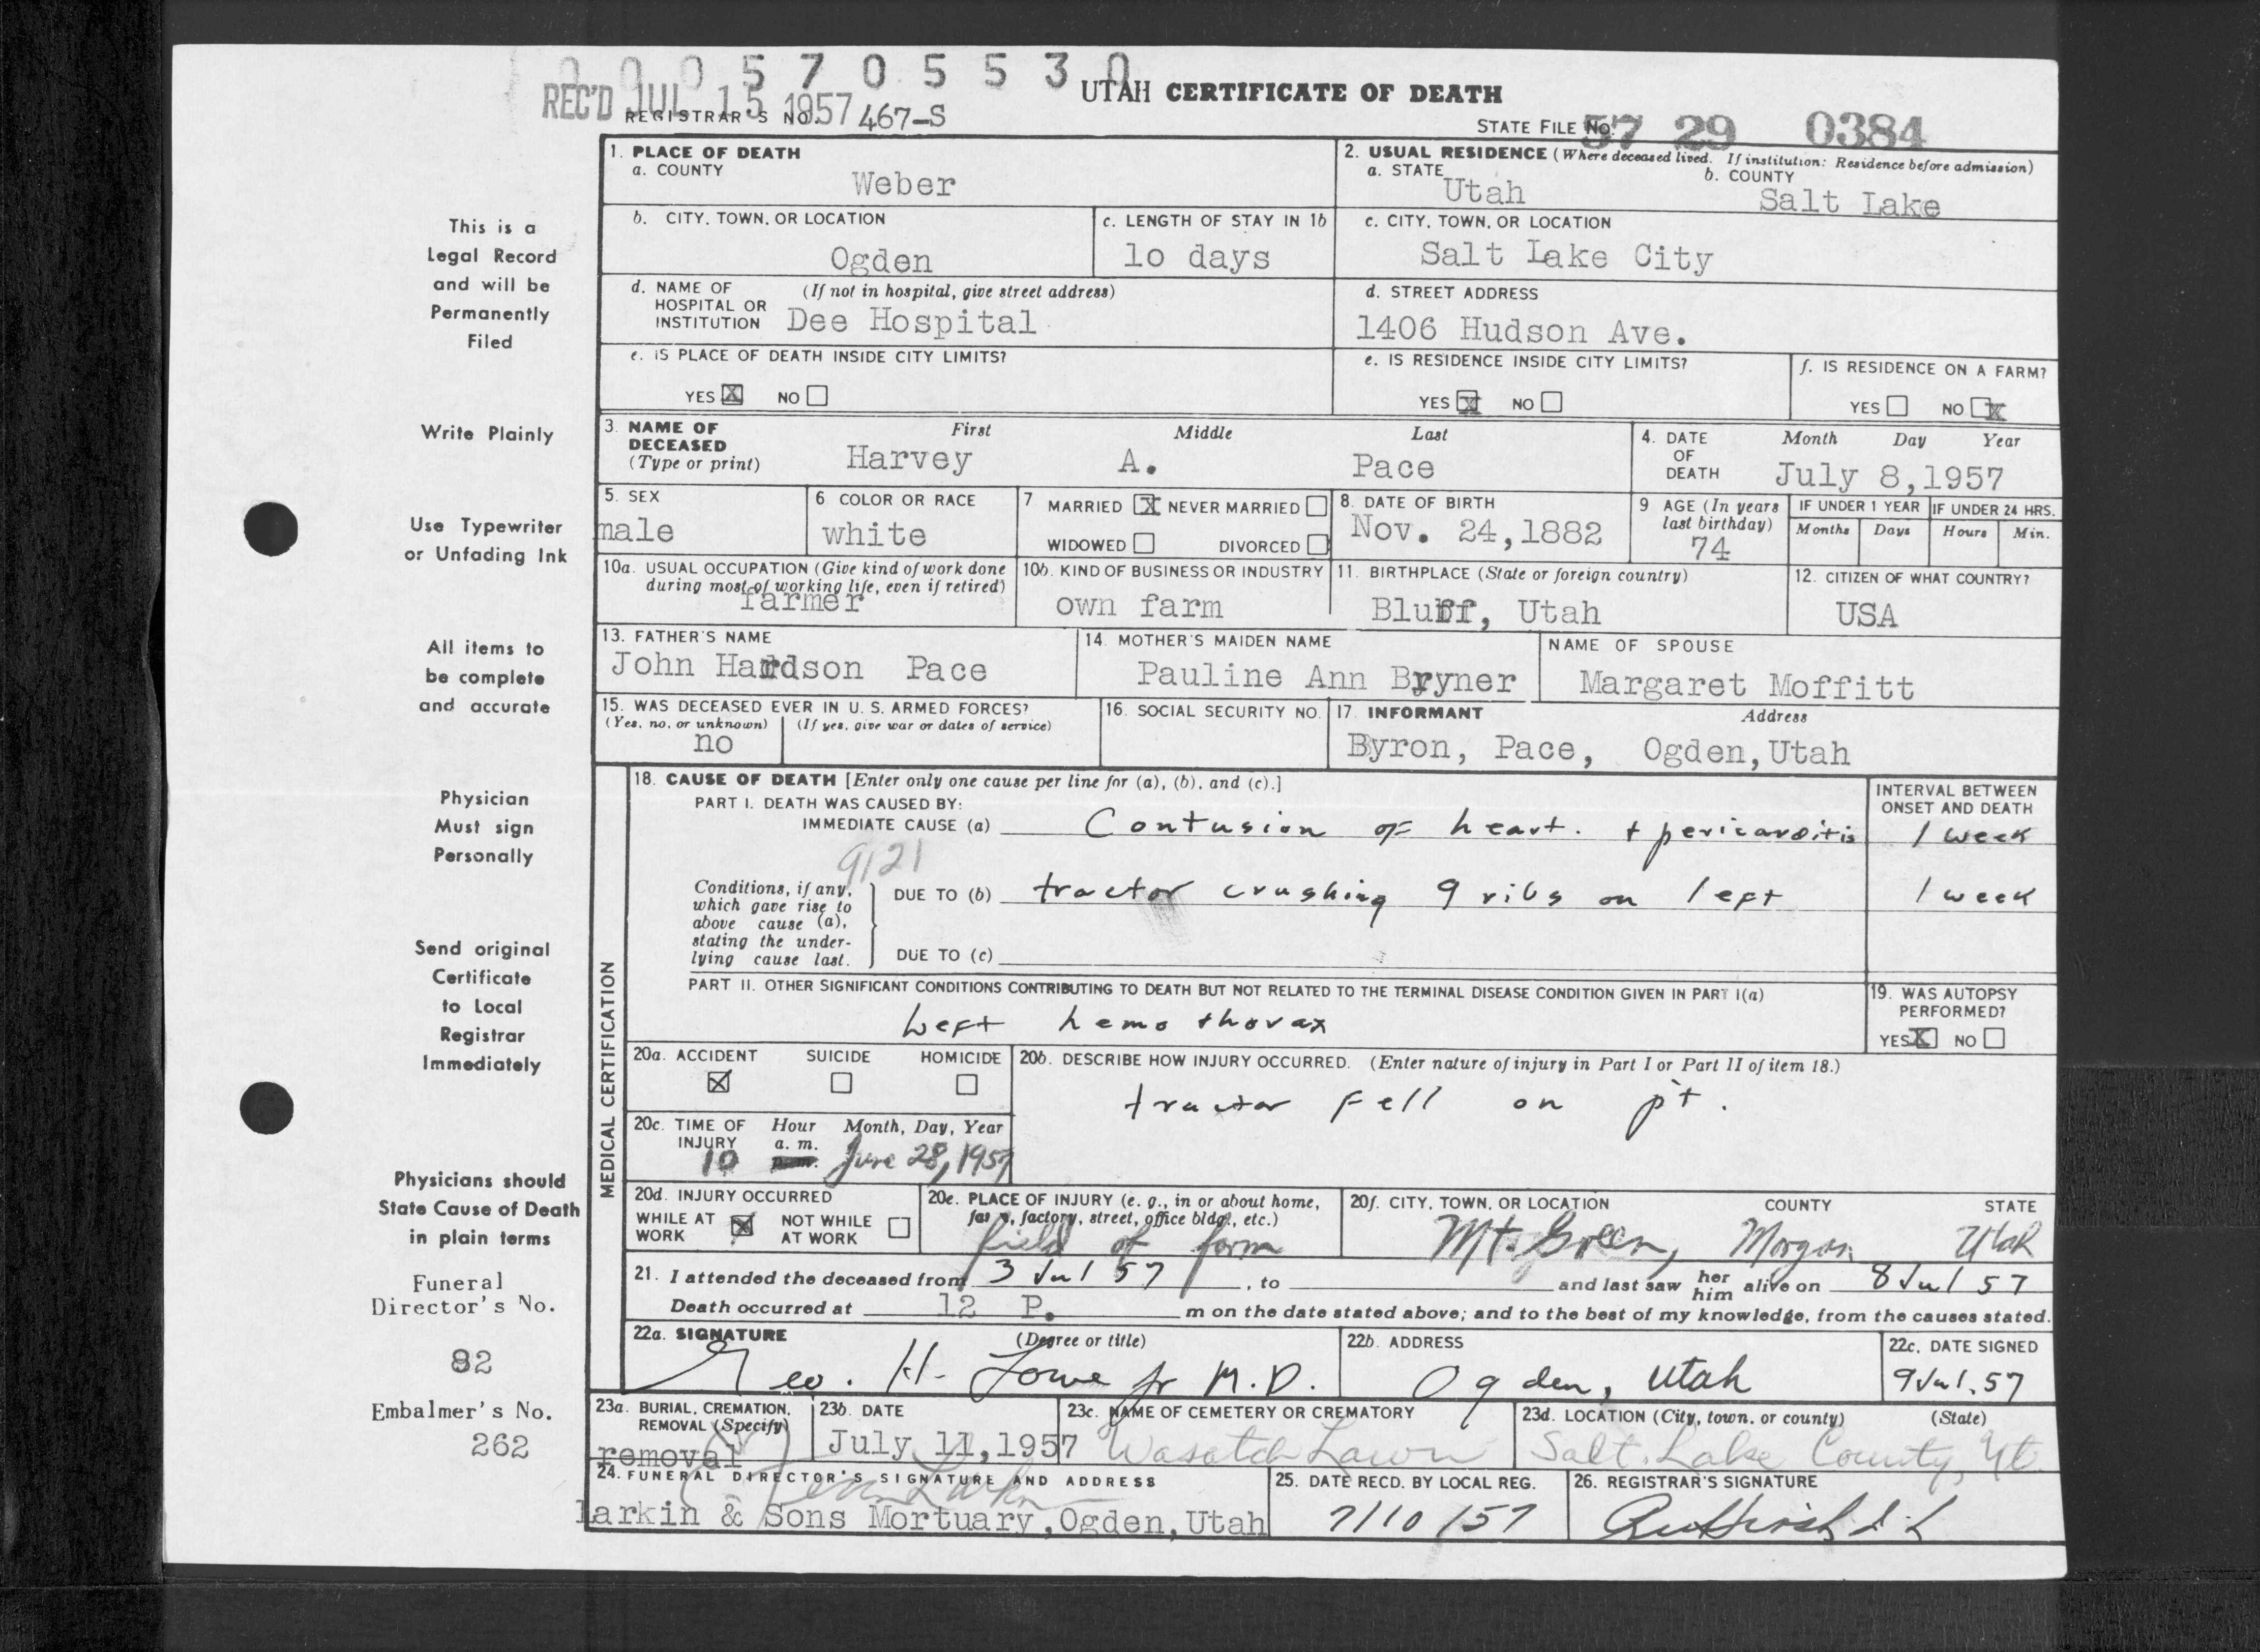 0 0 0 5 7 0 5 5 3 0
REC'D JUL 15 1957
REGISTRAR'S NO. 467-S
UTAH CERTIFICATE OF DEATH
STATE FILE NO. 57 29 0384
1. PLACE OF DEATH
a. COUNTY
Weber
2. USUAL RESIDENCE (Where deceased lived. If institution: Residence before admission)
a. STATE
Utah
b. COUNTY
Salt Lake
This is a
Legal Record
and will be
Permanently
Filed
b. CITY, TOWN, OR LOCATION
Ogden
c. LENGTH OF STAY IN 1b
lo days
c. CITY, TOWN, OR LOCATION
Salt Lake City
d. NAME OF HOSPITAL OR INSTITUTION
(If not in hospital, give street address)
Dee Hospital
d. STREET ADDRESS
1406 Hudson Ave.
e. IS PLACE OF DEATH INSIDE CITY LIMITS?
YES X NO
e. IS RESIDENCE INSIDE CITY LIMITS?
YES X NO
f. IS RESIDENCE ON A FARM?
YES NO X
Write Plainly
3. NAME OF DECEASED
(Type or print)
First Middle Last
Harvey A. Pace
4. DATE OF DEATH
Month Day Year
July 8,1957
Use Typewriter
or Unfading Ink
5. SEX
male
6 COLOR OR RACE
white
7 MARRIED X NEVER MARRIED
WIDOWED DIVORCED
8. DATE OF BIRTH
Nov. 24,1882
9 AGE (In years last birthday)
74
IF UNDER 1 YEAR
Months Days
IF UNDER 24 HRS.
Hours Min.
10a. USUAL OCCUPATION (Give kind of work done
during most of working life, even if retired)
farmer
10b. KIND OF BUSINESS OR INDUSTRY
own farm
11. BIRTHPLACE (State or foreign country)
Bluff, Utah
12. CITIZEN OF WHAT COUNTRY?
USA
All items to
be complete
and accurate
13. FATHER'S NAME
John Hardson Pace
14. MOTHER'S MAIDEN NAME
Pauline Ann Bryner
NAME OF SPOUSE
Margaret Moffitt
15. WAS DECEASED EVER IN U. S. ARMED FORCES?
(Yes, no, or unknown) (If yes, give war or dates of service)
no
16. SOCIAL SECURITY NO.
17. INFORMANT Address
Byron, Pace, Ogden,Utah
Physician
Must sign
Personally
MEDICAL CERTIFICATION
18. CAUSE OF DEATH [Enter only one cause per line for (a), (b), and (c).]
PART I. DEATH WAS CAUSED BY:
IMMEDIATE CAUSE (a) Contusion of heart. + pericarditis
INTERVAL BETWEEN
ONSET AND DEATH
1 week
9121
Conditions, if any,
which gave rise to
above cause (a),
stating the under-
lying cause last.
DUE TO (b) tractor crushing 9 ribs on left
1 week
DUE TO (c)
Send original
Certificate
to Local
Registrar
Immediately
PART II. OTHER SIGNIFICANT CONDITIONS CONTRIBUTING TO DEATH BUT NOT RELATED TO THE TERMINAL DISEASE CONDITION GIVEN IN PART I(a)
Left hemothorax
19. WAS AUTOPSY
PERFORMED?
YES X NO
20a. ACCIDENT SUICIDE HOMICIDE
X
20b. DESCRIBE HOW INJURY OCCURRED. (Enter nature of injury in Part I or Part II of item 18.)
tractor fell on pt.
20c. TIME OF INJURY
Hour Month, Day, Year
a. m.
p. m.
10 June 28, 1957
Physicians should
State Cause of Death
in plain terms
20d. INJURY OCCURRED
WHILE AT WORK X NOT WHILE AT WORK
20e. PLACE OF INJURY (e. g., in or about home,
farm, factory, street, office bldg., etc.)
field of farm
20f. CITY, TOWN, OR LOCATION COUNTY STATE
Mt. Green, Morgan Utah
21. I attended the deceased from 3 Jul 57, to and last saw her him alive on 8 Jul 57
Death occurred at 12 P. m on the date stated above; and to the best of my knowledge, from the causes stated.
Funeral
Director's No.
82
22a. SIGNATURE (Degree or title)
Geo. H. Lowe Jr M.D.
22b. ADDRESS
Ogden, Utah
22c. DATE SIGNED
9 Jul. 57
Embalmer's No.
262
23a. BURIAL, CREMATION, REMOVAL (Specify)
removal
23b. DATE
July 11,1957
23c. NAME OF CEMETERY OR CREMATORY
Wasatch Lawn
23d. LOCATION (City, town, or county) (State)
Salt Lake County, Ut.
24. FUNERAL DIRECTOR'S SIGNATURE AND ADDRESS
larkin & Sons Mortuary,Ogden,Utah
25. DATE RECD. BY LOCAL REG.
7/10/57
26. REGISTRAR'S SIGNATURE